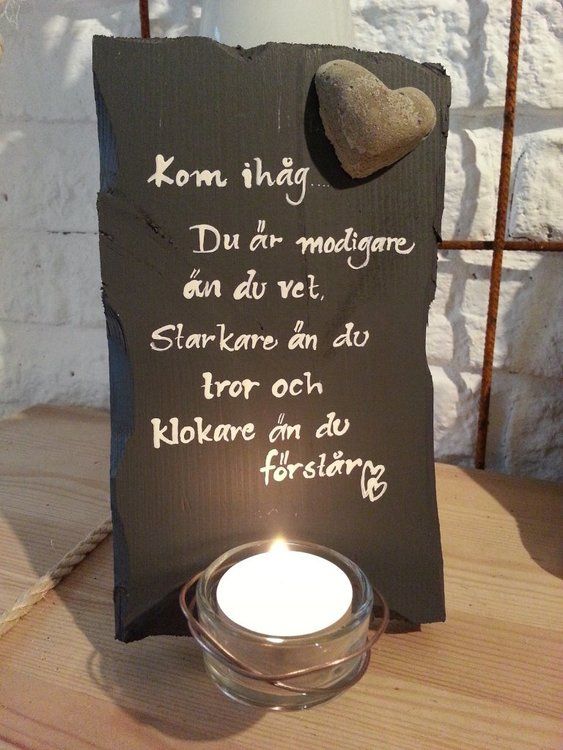 Kom ihåg....
Du är modigare
än du vet,
Starkare än du
tror och
klokare än du
förstår